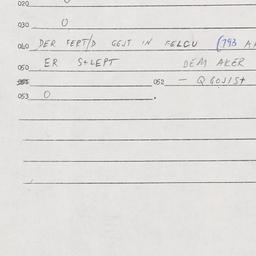 020
030 0
040 DER FERT/D GEJT IN FELGU (793
050 ER S+LEPT DEM AKER
052 - Q GOJIST
053 0 .